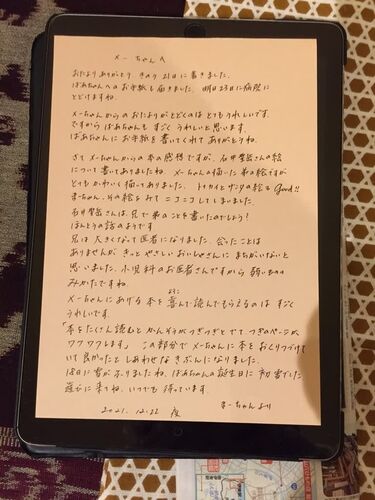 メーちゃんへ
おたよりありがとう きのう21日に書きました。
ばあちゃんへのお手紙も届きました。明日23日に病院に
とどけますね。
メーちゃんからのおたよりがとどくのは とてもうれしいです。
ですから ばあちゃんも すごく うれしいと思います。
ばあちゃんに お手紙を書いてくれて ありがとうね。
さて メーちゃんからの本の感想ですが、石井聖岳さんの絵
について書いてありましたね。 メーちゃんの描いた弟の絵ですが
とても かわいく描いてありました。 トナカイとサンタの絵も Good!!
まーちゃん、その絵をみて ニコニコしてしまいました。
石井聖岳さんは、兄で弟のことを書いたのでしょう!
ほんとうの話のようです
兄は大きくなって医者になりました。会ったことは
ありませんが きっと やさしい おいしゃさんに まちがいないと
思いました。小児科のお医者さんですから 弱いものの
みかたですね。
メーちゃんにあげる本を喜んで読んでもらえるのは すごく
よろこ
うれしいです。
「本をたくさん読むと かんそうがつぎつぎとでて つぎのページが
ワクワクします」 この部分で メーちゃんに本を おくりつづけて
いて良かったと しあわせな きぶんになりました。
18日に雪がふりましたね。ばあちゃんの誕生日に 初雪でした
遊びに来てね。いつでも 待っています。
2021. 12. 22 夜
まーちゃんより